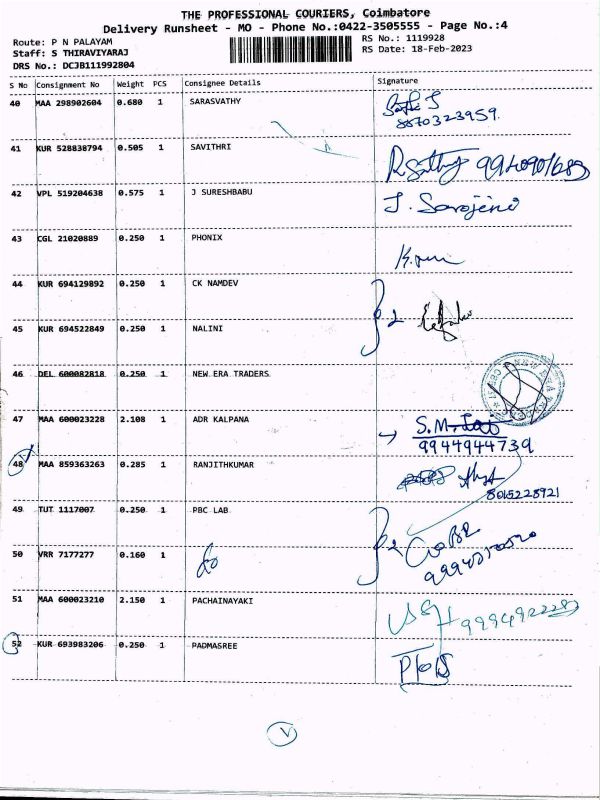 THE PROFESSIONAL COURIERS, Coimbatore
Delivery Runsheet - MO - Phone No.:0422-3505555 - Page No.:4
Route: P N PALAYAM
RS No.: 1119928
Staff: S THIRAVIYARAJ
RS Date: 18-Feb-2023
DRS No.: DC3B111992804
S No Consignment No Weight PCS Consignee Details Signature
40 MAA 298902604 0.680 1 SARASVATHY
8870323959
41 KUR 528838794 0.505 1 SAVITHRI
42 VPL 519204638 0.575 1 J SURESHBABU J. Sarojini
43 CGL 21020889 0.250 1 PHONIX
44 KUR 694129892 0.250 1 CK NAMDEV
2
45 KUR 694522849 0.250 1 NALINI
46 DEL 600082818 0.250 1 NEW ERA TRADERS
47 MAA 600023228 2.108 1 ADR KALPANA
9944944739
48 MAA 859363263 0.285 1 RANJITHKUMAR
8015228921
49 TUT 1117007 0.250 1 PBC LAB
2
50 VRR 7177277 0.160 1 do
51 MAA 600023210 2.150 1 PACHAINAYAKI
52 KUR 693983206 0.250 1 PADMASREE
V